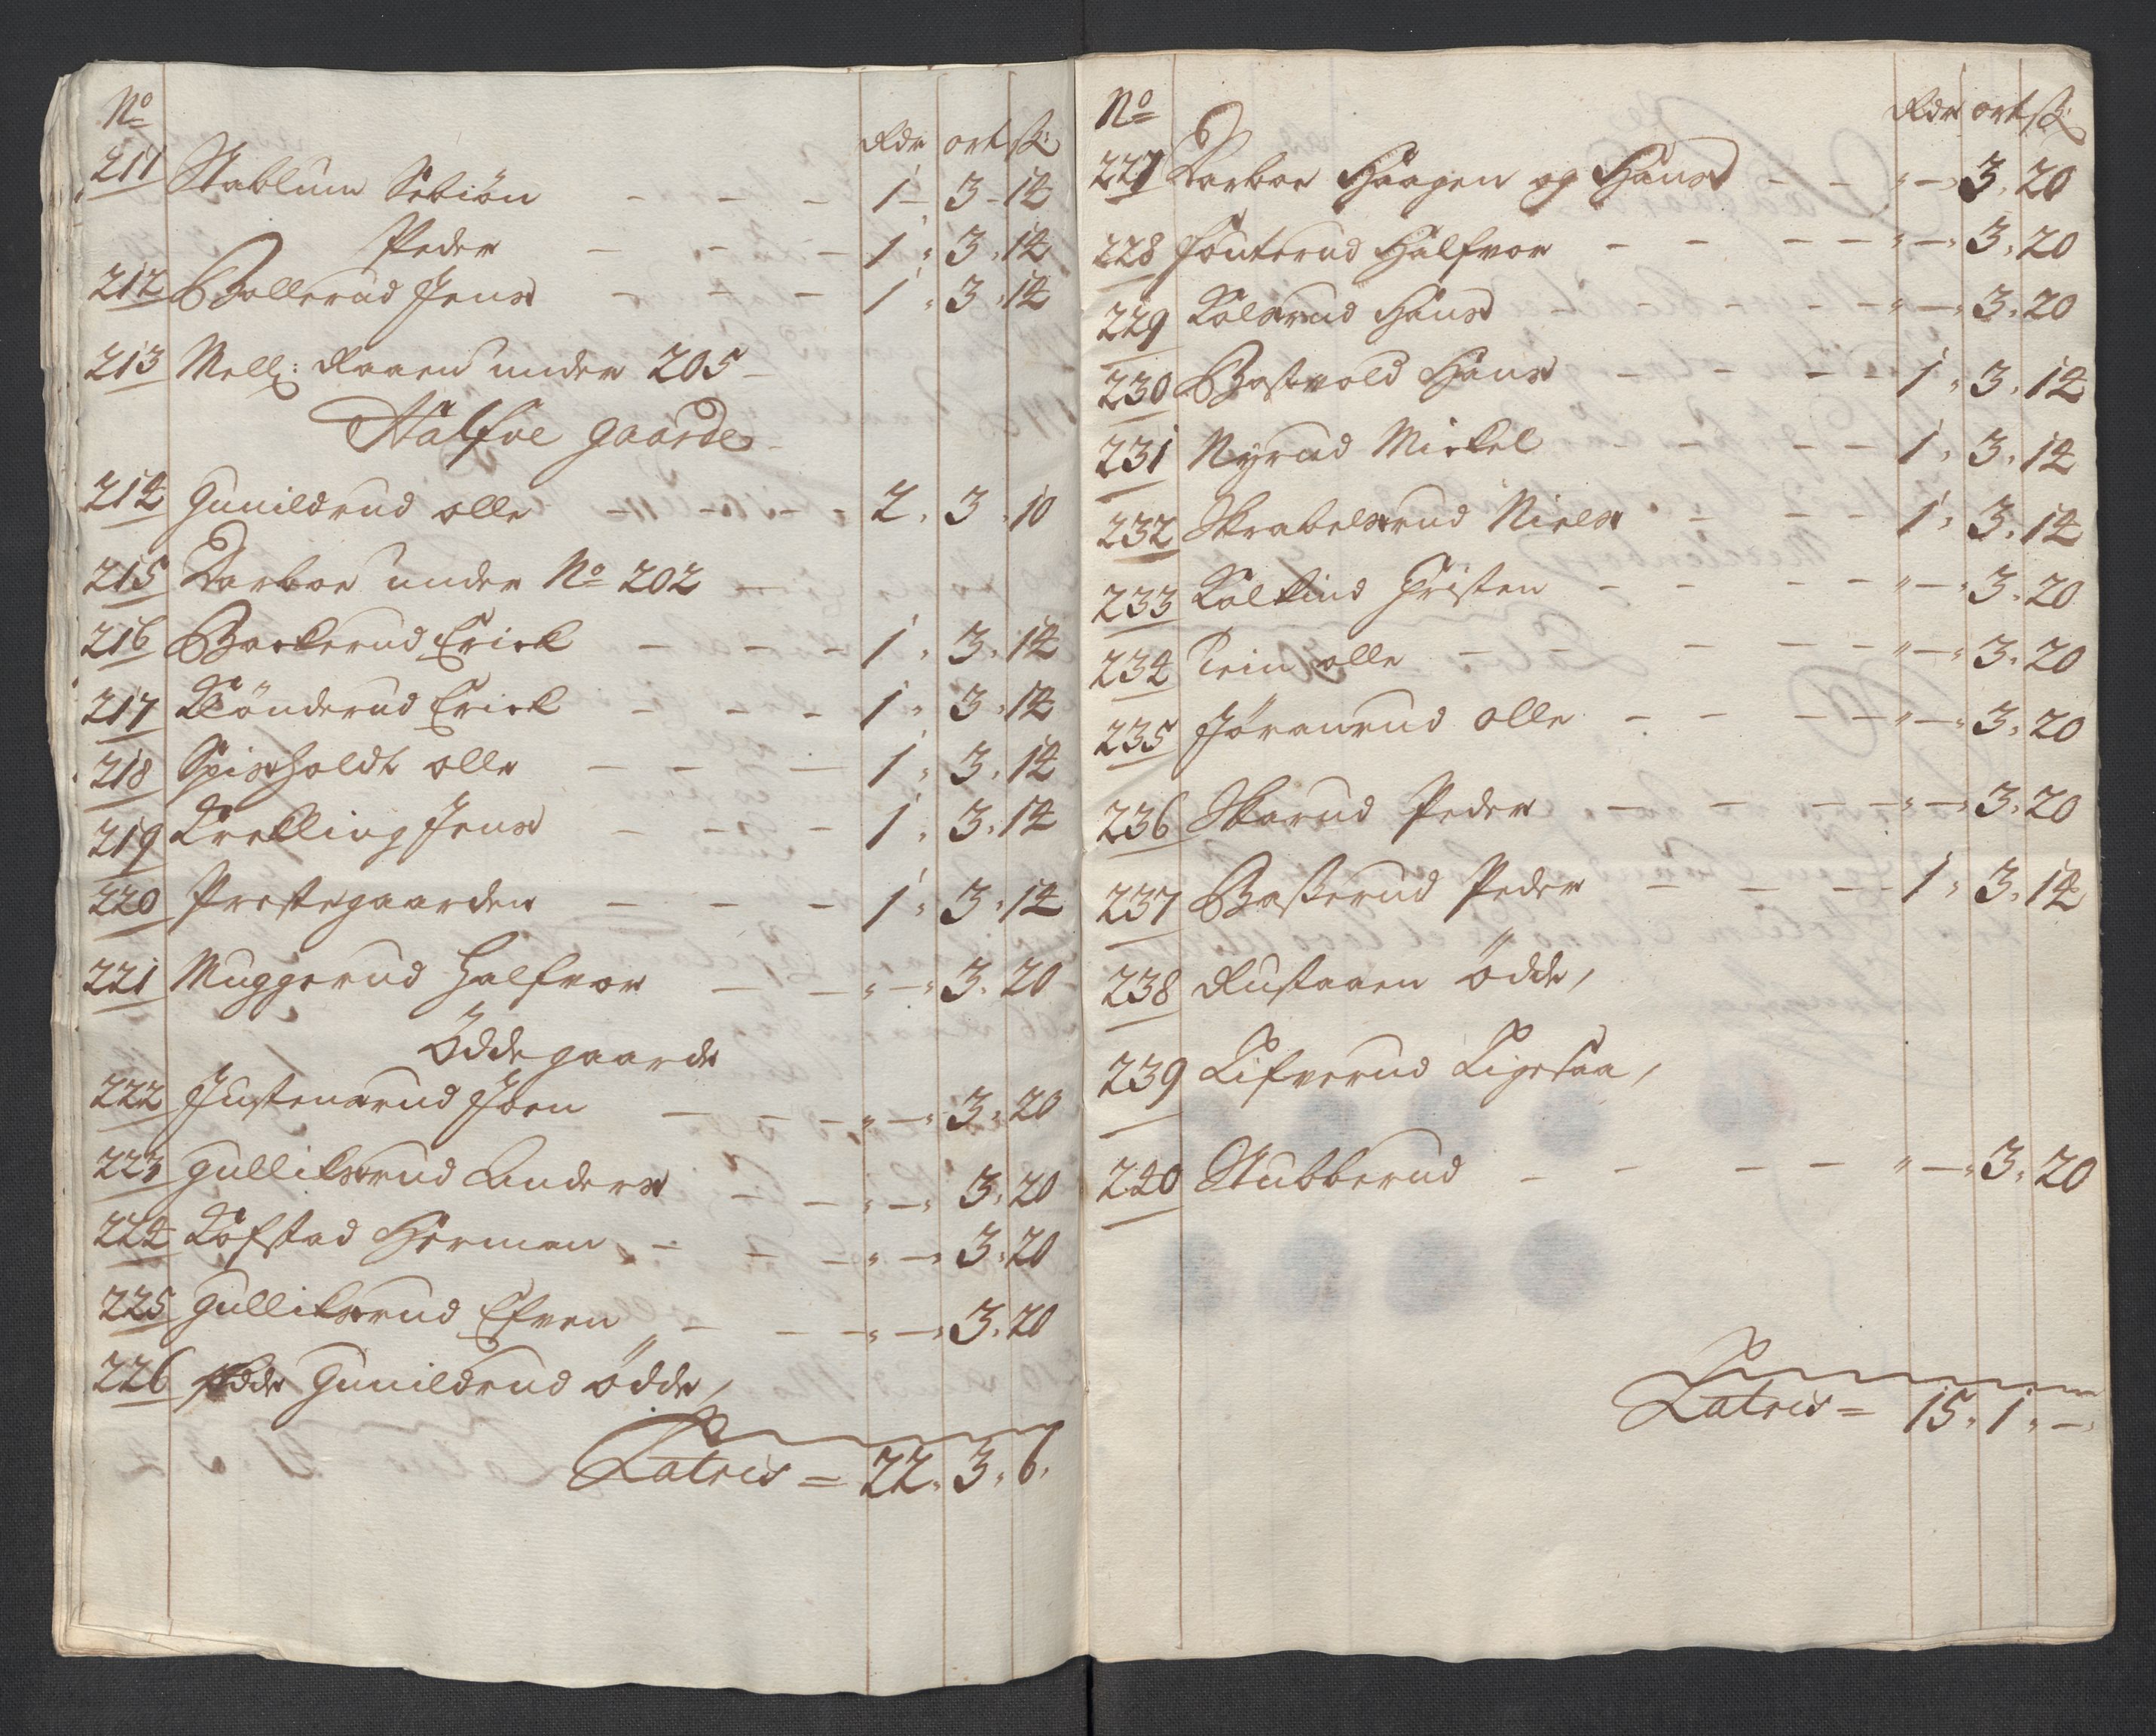 No
Rdr ort ß:
211 Stablum Sebiön - - - 1 - 3 - 14
Peder - - - 1 " 3 " 14
212 Bollerud Jens - - - 1 " 3 " 14
213 Mell: Raaen under 205 -
Halfve gaarde
214 Gunildrud olle - - - - 2 " 3 " 10
215 Darboe under No 202 -
216 Backerud Erick - - - 1 " 3 " 14
217 Klönderud Erick - - - 1 " 3 " 14
218 Spisholdt olle - - - 1 " 3 " 14
219 Krekling Jens - - - 1 " 3 " 14
220 Prestegaarden - - - 1 " 3 " 14
221 Muggerud Halfvor - - " - " 3 " 20
Ödde gaarde
222 Justensrud Joen - - - " - " 3 " 20
223 Gulliksrud Anders - - " - " 3 " 20
224 Kofstad Herman - - - " - " 3 " 20
225 Gulliksrud Efven - - - " - " 3 " 20
226 Gunildrud ödde,
Lateris = 22 " 3 " 6 "
No
Rdr ort ß:
227 Darboe Haagen og Hans - - " - " 3 " 20
228 Fouterud Halfvor - - - - " - " 3 " 20
229 Kolsrud Hans - - - - " - " 3 " 20
230 Bastvold Hans - - - - 1 " 3 " 14
231 Nyrud Mickel - - - - 1 " 3 " 14
232 Skrabelsrud Niels - - - 1 " 3 " 14
233 Kolkind Christen - - - - " - " 3 " 20
234 Tein olle - - - - - " - " 3 " 20
235 Jöranrud olle - - - - " - " 3 " 20
236 Skarud Peder - - - - " - " 3 " 20
237 Basserud Peder - - - - 1 " 3 " 14
238 Rustaaen Ödde,
239 Lifverud Ligesaa,
240 Stubberud - - - - " - " 3 " 20
Lateris = 15 " 1 " - "